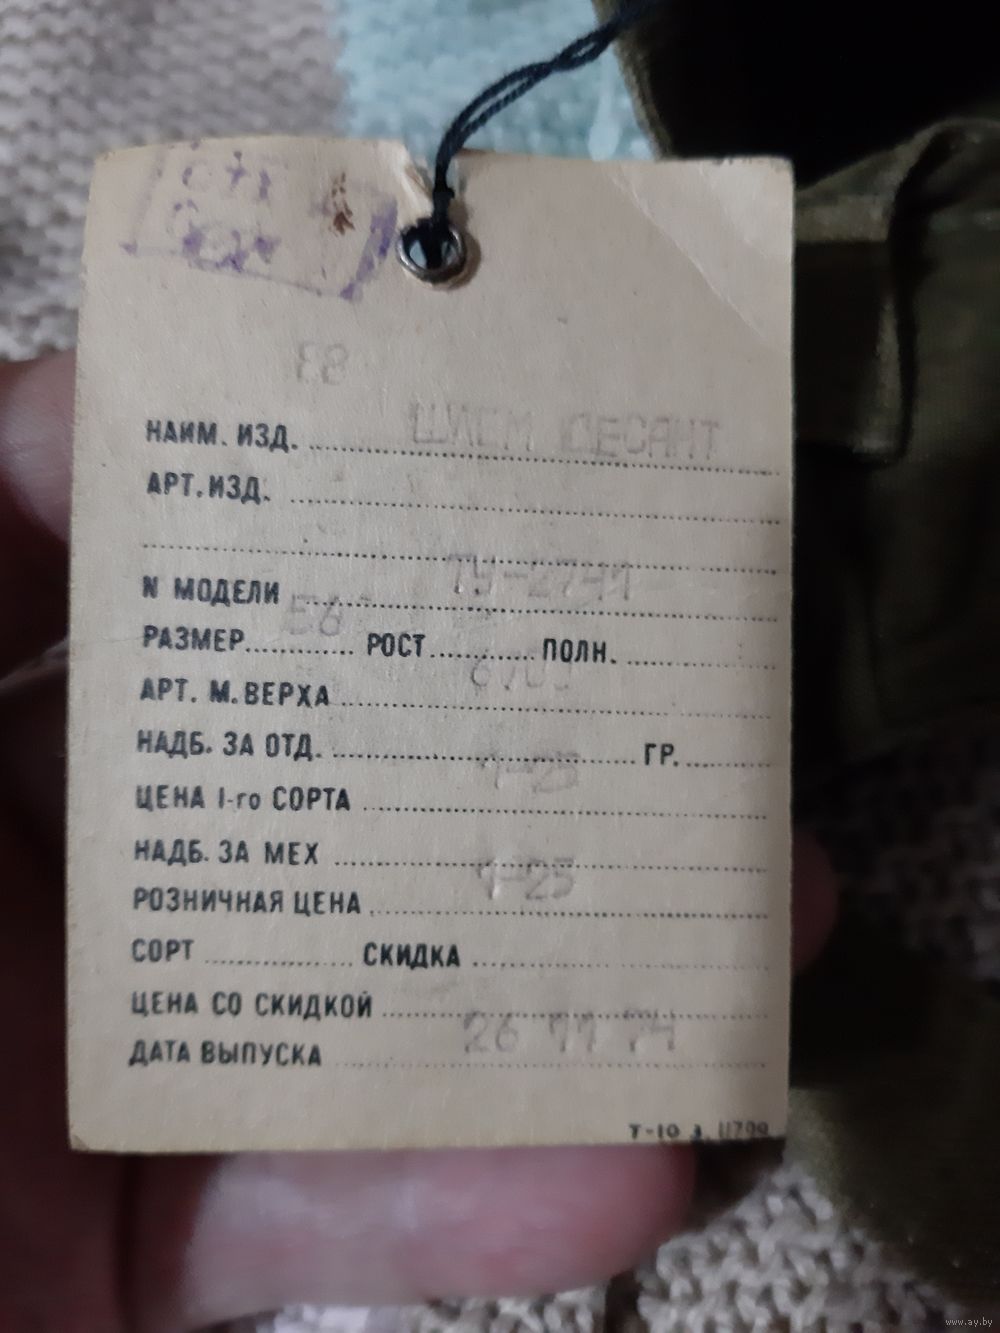 ОТК
83
НАИМ. ИЗД. ШЛЕМ ДЕСАНТ
АРТ. ИЗД.
N МОДЕЛИ ТУ-2741
РАЗМЕР 56 РОСТ ПОЛН.
АРТ. М. ВЕРХА
НАДБ. ЗА ОТД. ГР.
ЦЕНА I-го СОРТА 1-25
НАДБ. ЗА МЕХ
РОЗНИЧНАЯ ЦЕНА 1-25
СОРТ СКИДКА
ЦЕНА СО СКИДКОЙ
ДАТА ВЫПУСКА 26 11 74
Т-10 З. 11700
www.ay.by